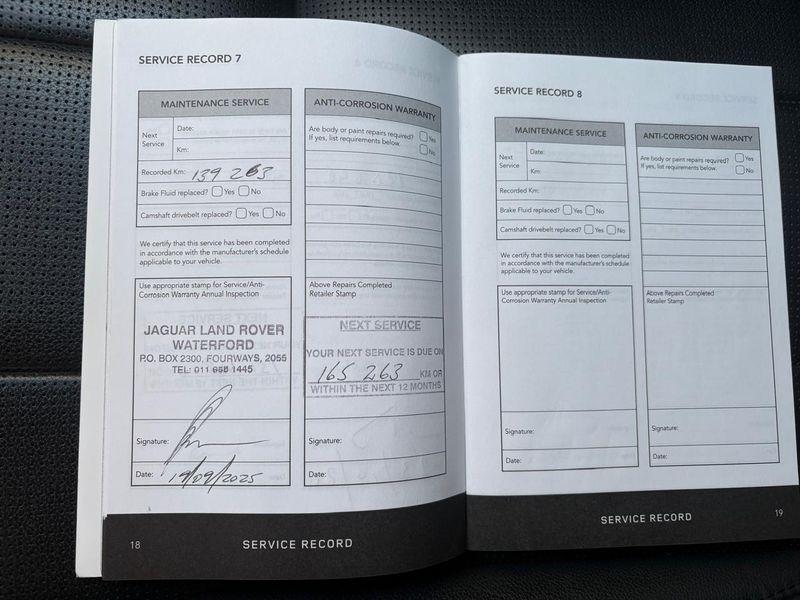 SERVICE RECORD 7
MAINTENANCE SERVICE
Next
Service
Date:
Km:
Recorded Km: 139 263
Brake Fluid replaced? Yes No
Camshaft drivebelt replaced? Yes No
We certify that this service has been completed
in accordance with the manufacturer's schedule
applicable to your vehicle.
Use appropriate stamp for Service/Anti-
Corrosion Warranty Annual Inspection
JAGUAR LAND ROVER
WATERFORD
P.O. BOX 2300, FOURWAYS, 2055
TEL: 011 1445
Signature:
Date: 19/09/2025
ANTI-CORROSION WARRANTY
Are body or paint repairs required? Yes
If yes, list requirements below. No
Above Repairs Completed
Retailer Stamp
NEXT SERVICE
YOUR NEXT SERVICE IS DUE ON
165 263 KM OR
WITHIN THE NEXT 12 MONTHS
Signature:
Date:
18 SERVICE RECORD
SERVICE RECORD 8
MAINTENANCE SERVICE
Next
Service
Date:
Km:
Recorded Km:
Brake Fluid replaced? Yes No
Camshaft drivebelt replaced? Yes No
We certify that this service has been completed
in accordance with the manufacturer's schedule
applicable to your vehicle.
Use appropriate stamp for Service/Anti-
Corrosion Warranty Annual Inspection
Signature:
Date:
ANTI-CORROSION WARRANTY
Are body or paint repairs required? Yes
If yes, list requirements below. No
Above Repairs Completed
Retailer Stamp
Signature:
Date:
SERVICE RECORD 19